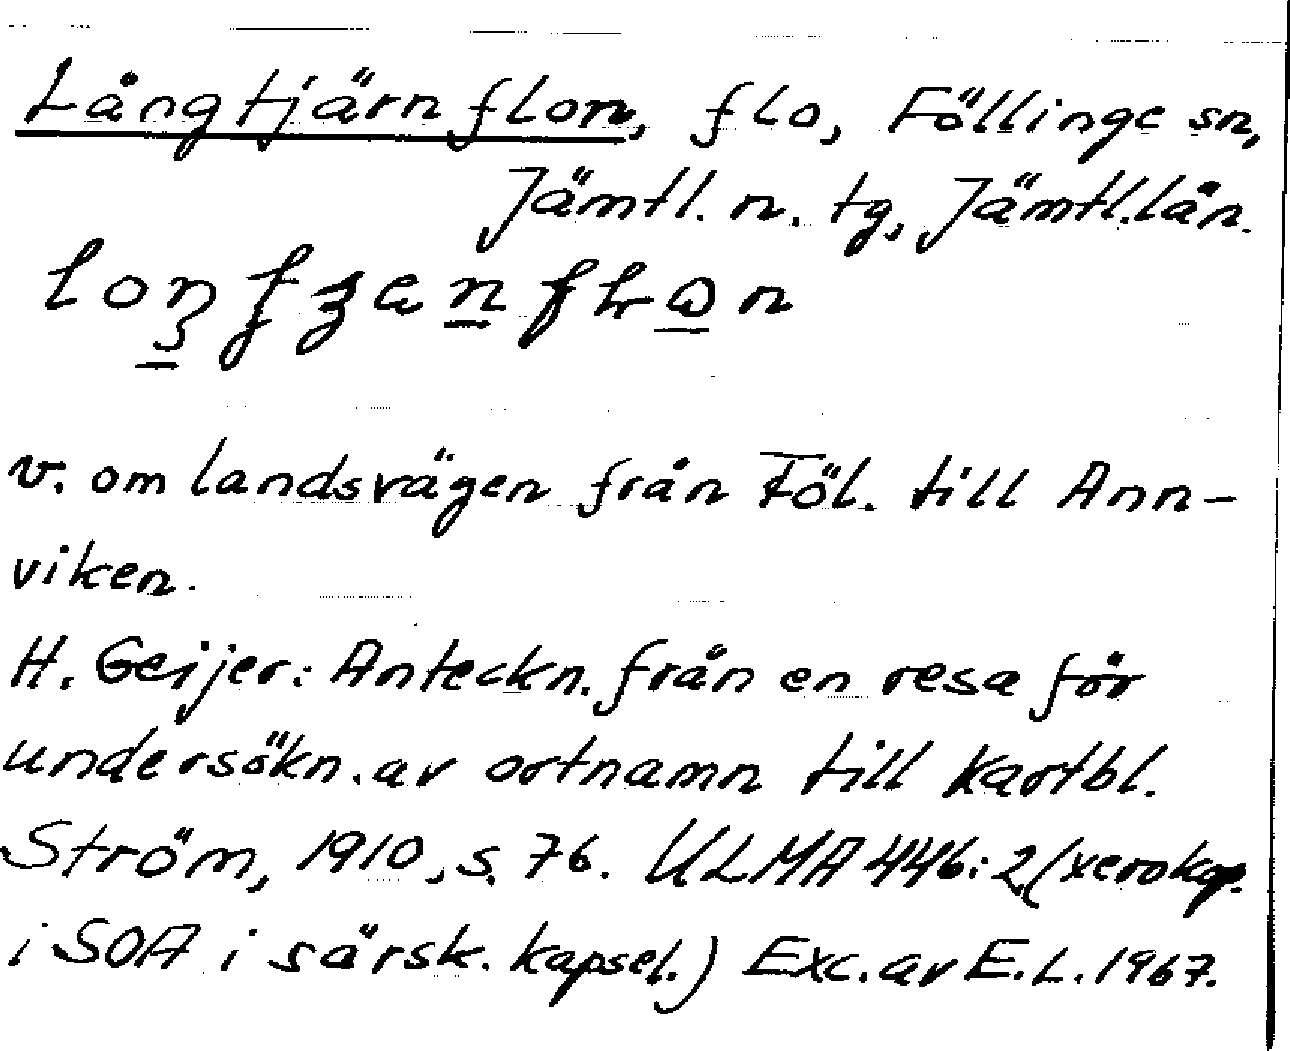 Långtjärnflon, flo, Föllinge sn,
Jämtl. n. tg, Jämtl.län.
v. om landsvägen från Föl. till Ann-
viken.
H. Geijer: Anteckn. från en resa för
undersökn. av ortnamn till kartbl.
Ström, 1910, s. 76. ULMA 446:2 (xerokop.
i SOA i särsk. kapsel.) Exc. av E.L. 1967.